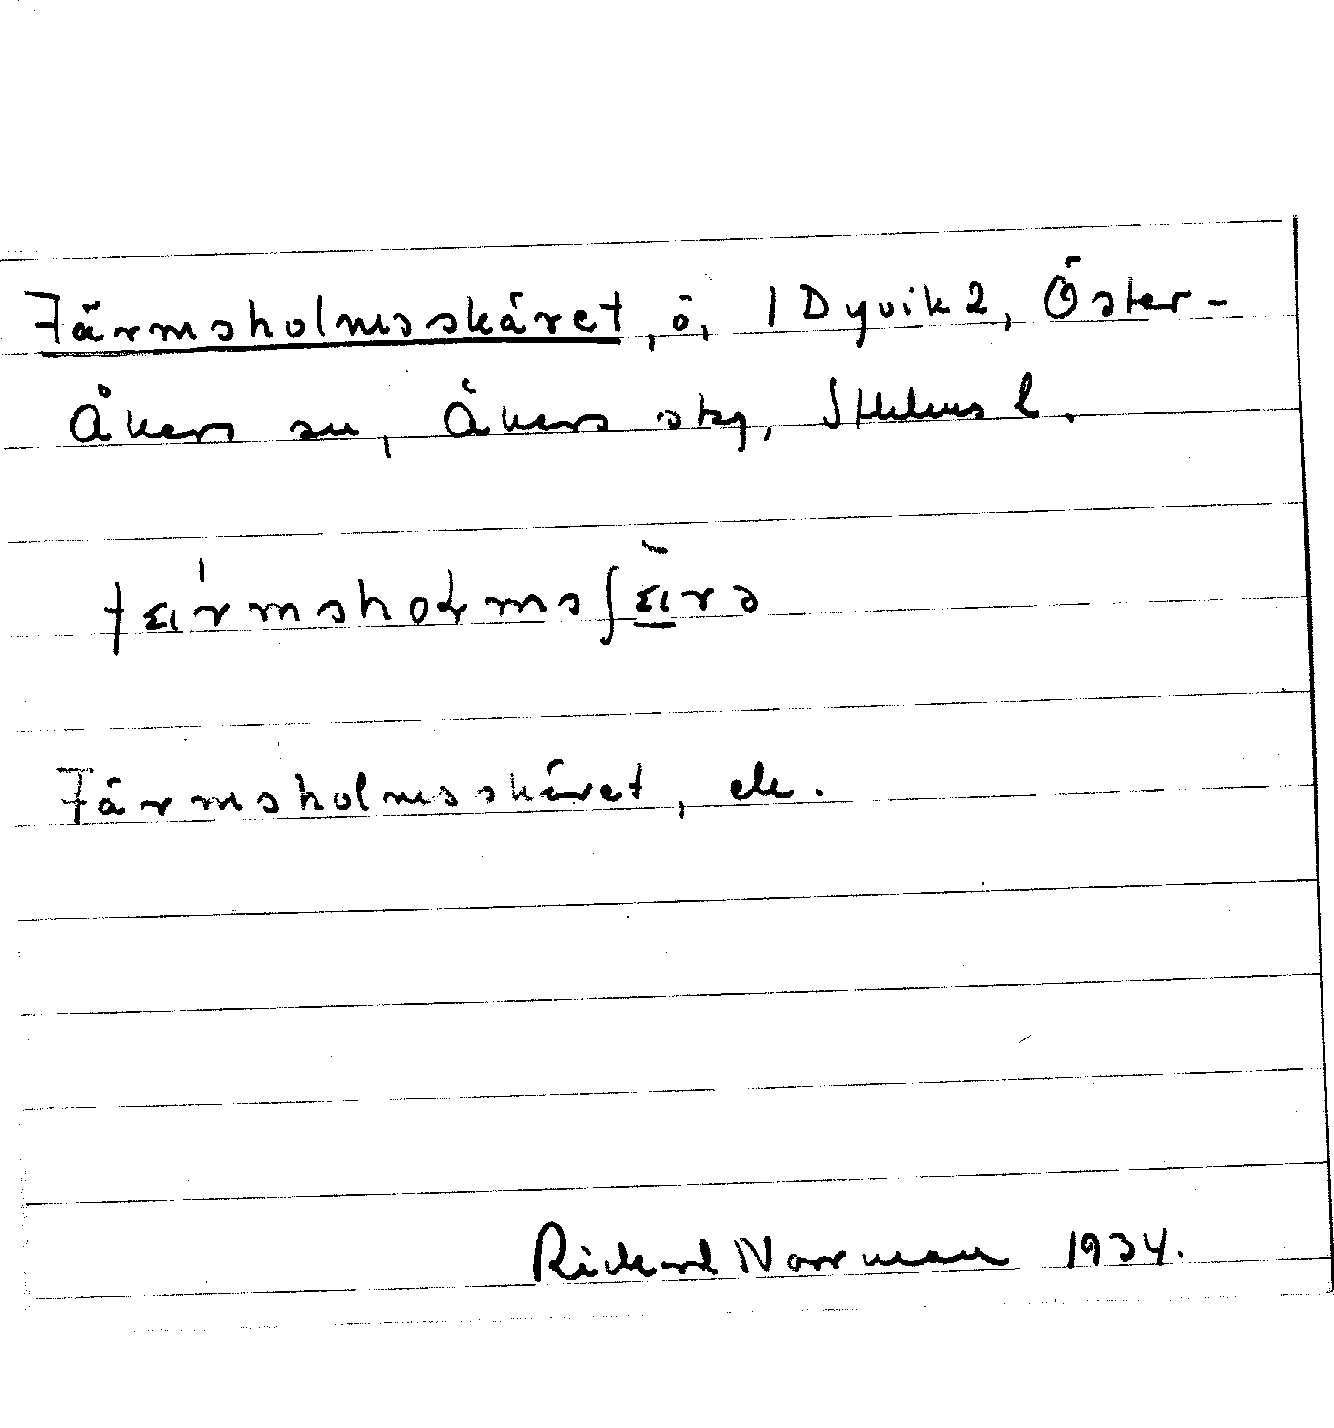 Färmsholmsskäret, ö, 1 Dyvik 2, Öster-
Åkers sn, Åkers skg, Sthlms l.
Färmsholmsskäret, ek.
Rickard Norrman 1934.